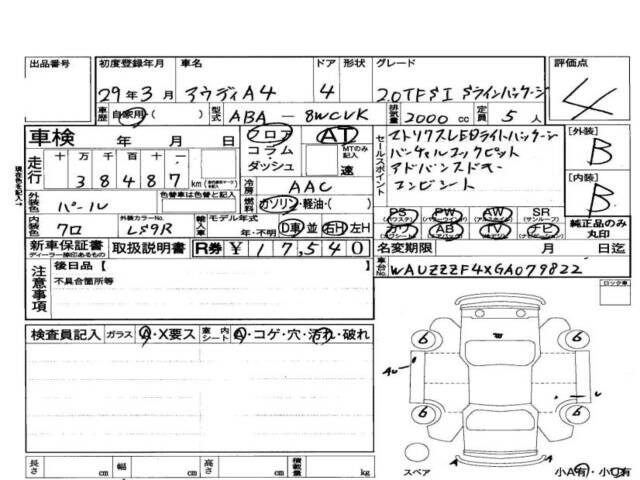 出品番号 初度登録年月 車名 ドア 形状 グレード 評価点
29年3月 アウディA4 4 2.0TFSI Sラインパッケージ 4
車歴 自家用・( ) 型式 ABA-8WCVK 排気量 2000cc 定員 5人
車検 年 月 日 フロア コラム・ダッシュ AT MTのみ記入 速
走行 十万千百十一 38487 km 冷房 AAC
セールスポイント マトリクスLEDライトパッケージ
バーチャルコックピット
アドバンスドキー
コンビシート
[外装] B
[内装] B
外装色 パール 色替車は色替と記入 燃料 ガソリン・軽油・( )
内装色 クロ 外装カラーNo. LS9R 輸入車 モデル年式 年・不明 D車 並 右H 左H
PS PW AW SR (サンルーフ)
カワ AB TV ナビ
純正品のみ丸印
新車保証書 ディーラー捺印あるもの 取扱説明書 R券 ¥17,540 名変期限 月 日迄
注意事項 後日品【 】 車台No. WAUZZZF4XGA079822
不具合箇所等
ロック車
検査員記入 ガラス A・X要ス 室内シート コゲ・穴・汚れ・破れ
6 6
AU U
6 6
A A
スペア 小A有・小U有
長さ cm 幅 cm 高さ cm 積載量 kg